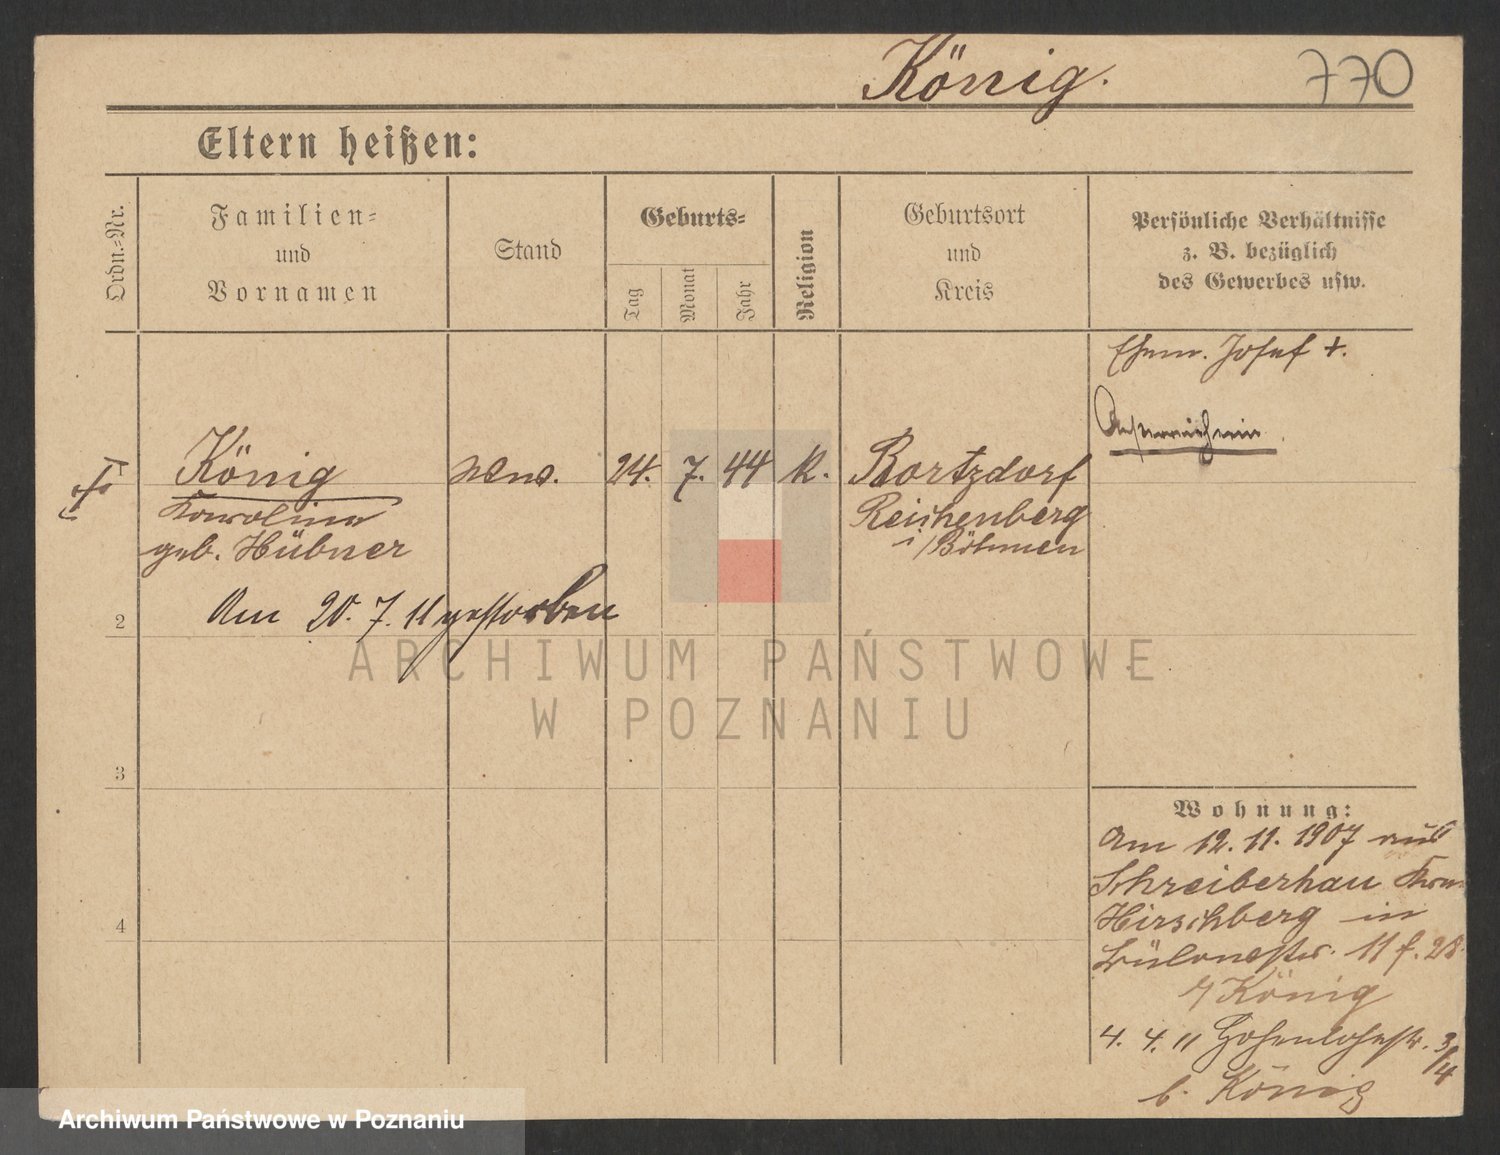 König.
770
Eltern heißen:
Ordn.-Nr.
Familien-
und
Vornamen
Stand
Geburts-
Tag
Monat
Jahr
Religion
Geburtsort
und
Kreis
Persönliche Verhältnisse
z. B. bezüglich
des Gewerbes usw.
Ehem. Josef +.
Österreicherin.
König Wwe. 24. 7. 44 k.
Karoline
geb. Hübner
Reichenberg
i/Böhmen
Am 20. 7. 11 gestorben
2
3
4
ARCHIWUM PAŃSTWOWE
W POZNANIU
Wohnung:
Am 12. 11. 1907 aus
Schreiberhau
Hirschberg in
11
König
4. 4. 11 Hohenlohestr. 3/4
b. König
Archiwum Państwowe w Poznaniu